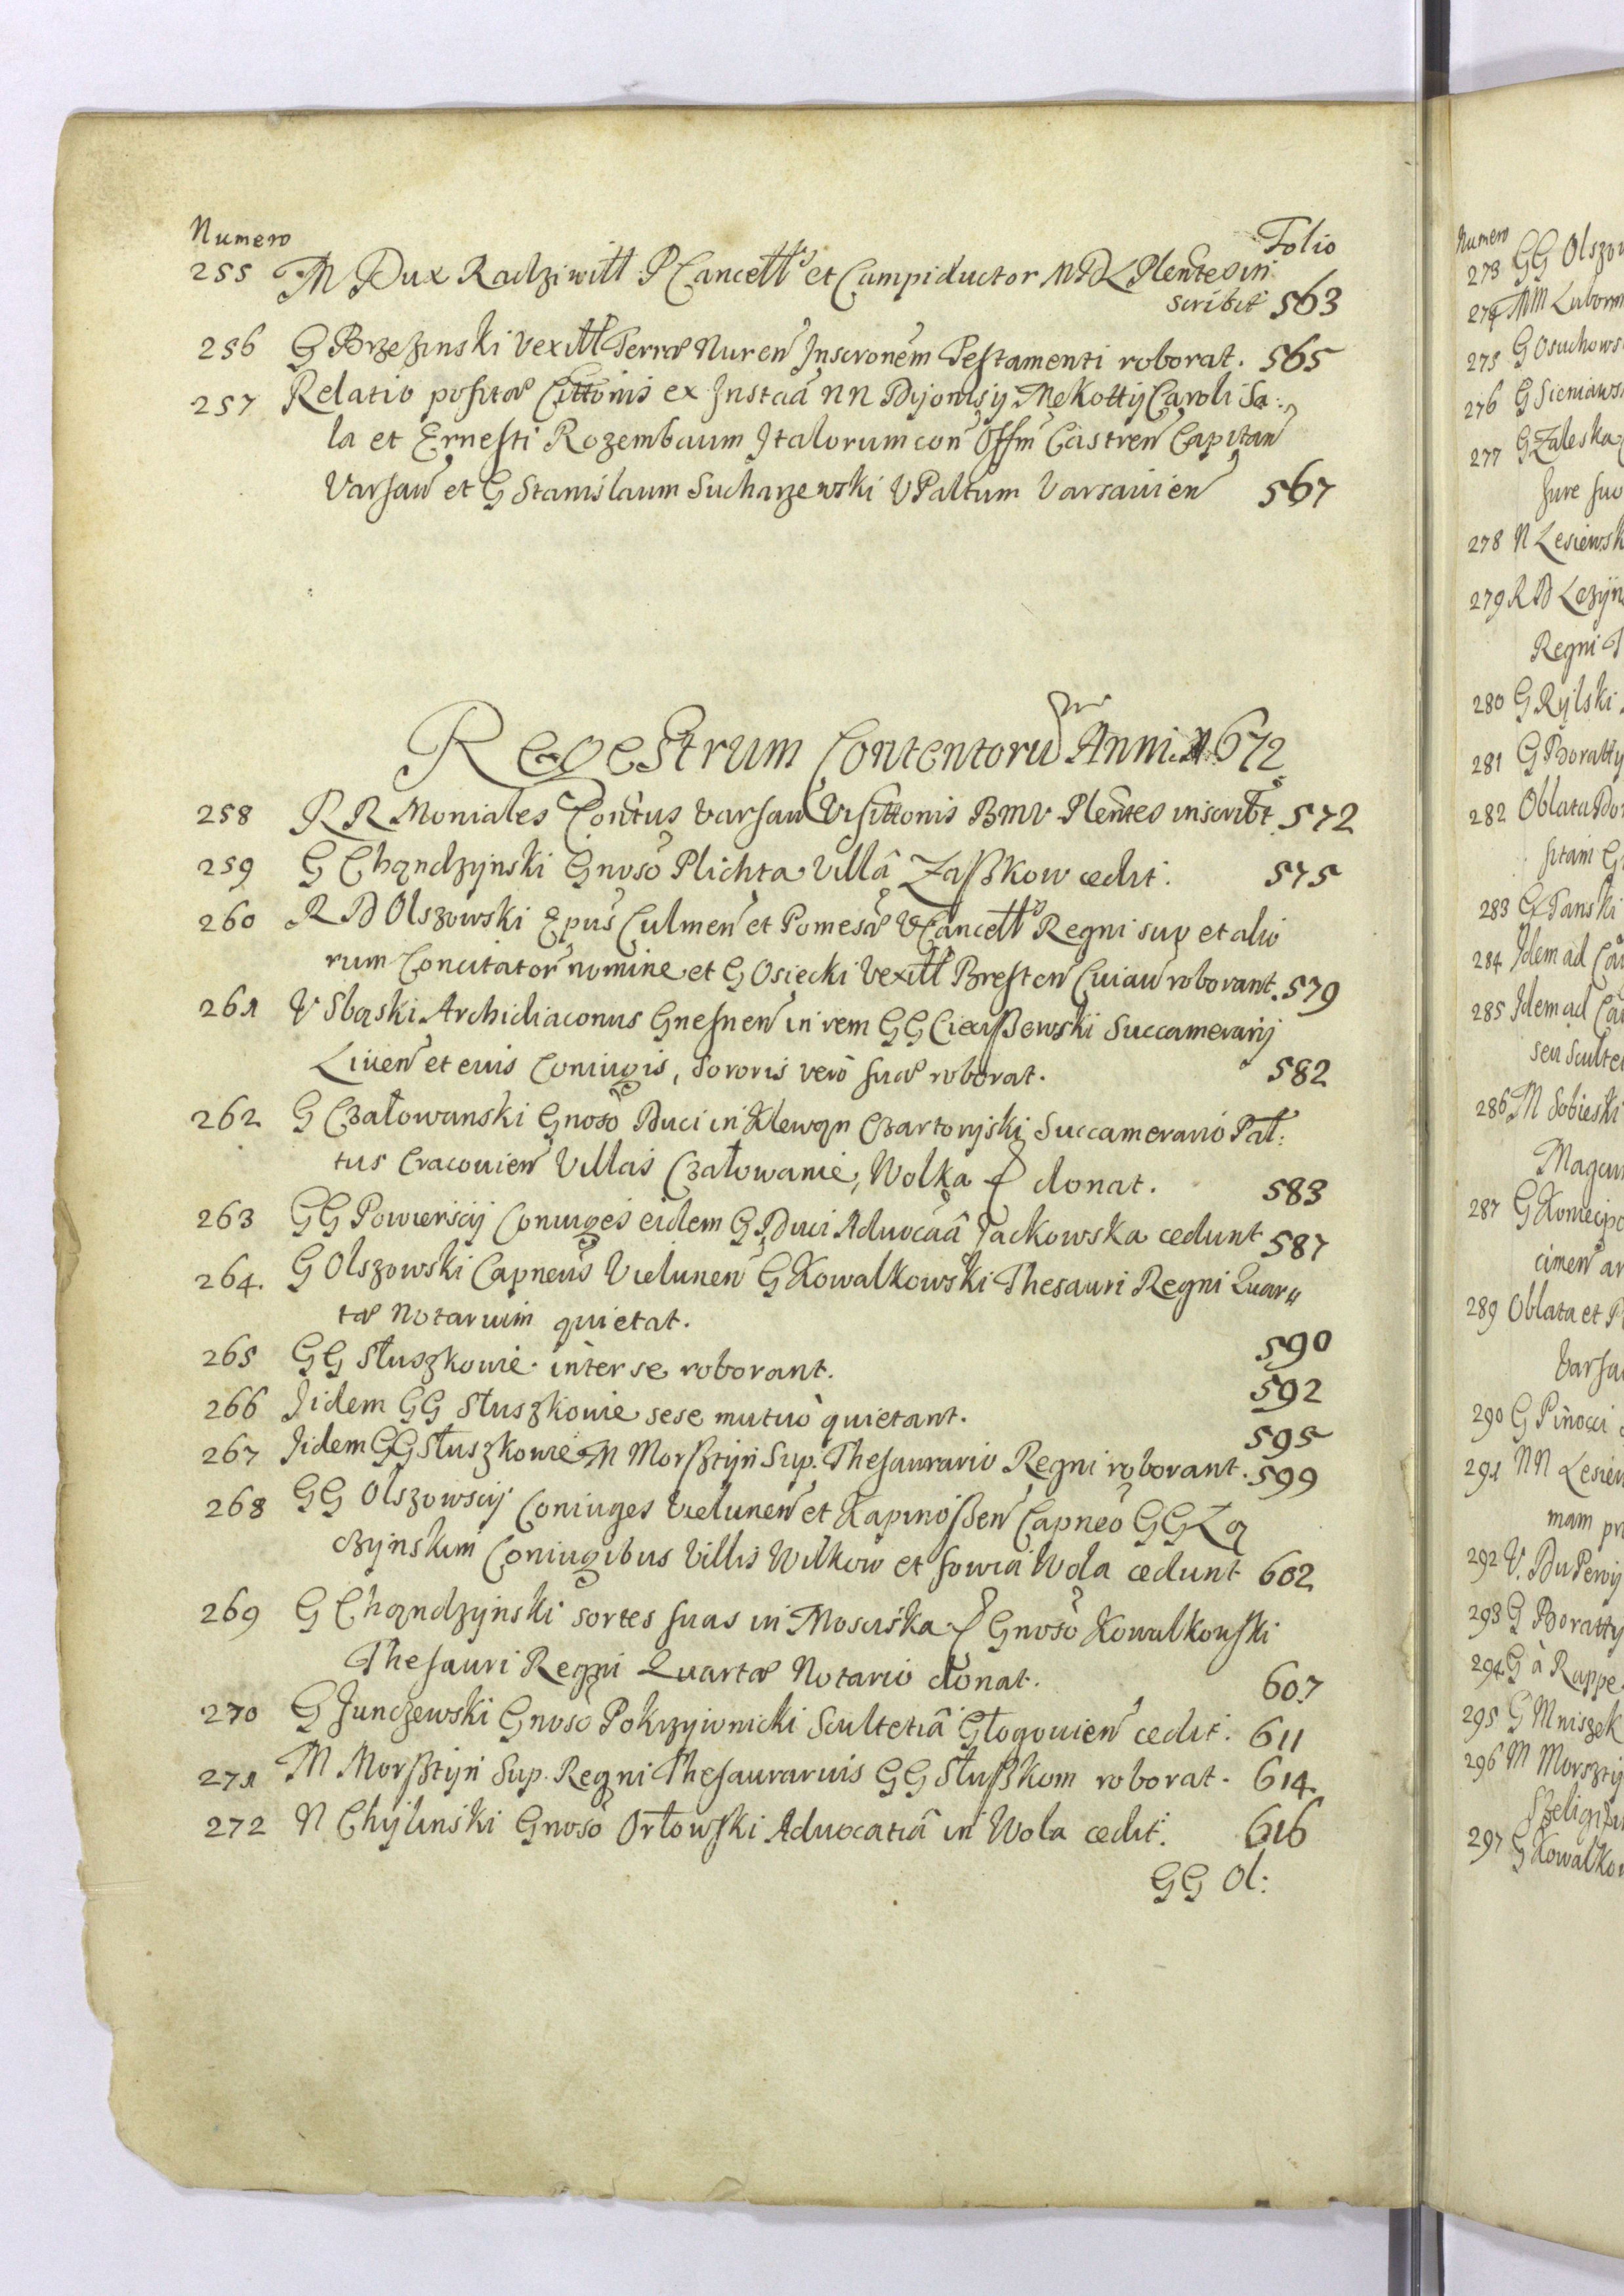 Numero
Folio
255 M Dux Radziwiłł P Cancell et Campiductor MDL Plentes in
scribit 563
256 G Brzezinski Vexill Terræ Nuren Inscronem Testamenti roborat. 565
257 Relatio positæ Cittonis ex Instaã NN Dijonisij Mekottij Caroli Sa:
la et Ernesti Rozembaum Italorum con Offm Castren Capitan
Varsaw et G Stanislaum Sucharzewski VPaltum Varsavien 567
Regestrum Contentorũ Anni 1672
258 RR Moniales Contus Varsaw Visittonis BMV Plentes inscribt 572
259 G Chądzynski Gnoso Plichta Villâ Zaßkow cedit. 575
260 RD Olszowski Epus Culmen et Pomesæ VCancell Regni suo et alio
rum Concitator nomine et G Osiecki Vexill Bresten Cuiaw roborant. 579
261 V Sbąski Archidiaconus Gnesnen in rem GG Ciecißewski Succamerarij
Liuen et euis Coniugis, Sororis verò suæ roborat. 582
262 G Czałowanski Gnoso Duci in Klewąn Czartoryski Succamerario Pał:
tus Cracouien Villas Czałowanie, Wolka & donat. 583
263 GG Powierscy Coniuges eidem G Duci Aduocaâ Jackowska cedunt 587
264. G Olszowski Capneus Vielunen G Kowalkowski Thesauri Regni Quar
tæ Notarium quietat. 590
265 GG Słuszkowie inter se roborant. 592
266 Iidem GG Słuszkowie sese mutuò quietant. 595
267 Iidem GG Słuszkowie M Morßtijn Sup. Thesaurario Regni roborant. 599
268 GG Olszowscij Coniuges Vielunen et Kapinoßen Capneo GG Lączynskim Coniugibus Villis Wilkow et Sowia Wola cedunt 602
269 G Chądzynski sortes suas in Mosciska & Gnoso Kowalkowski
Thesauri Regni Quartæ Notario donat. 607
270 G Junczewski Gnoso Pokrzywnicki Scultetiâ Głogouien cedit. 611
271 M Morßtijn Sup. Regni Thesaurarius GG Słußkom roborat. 614
272 N Chylinski Gnoso Orłowski Advocatiâ in Wola cedit. 616
GG Ol:
Numero
273 GG Olszow
274 MM Lubom
275 G Osuchows
276 G Sieniaws
277 G Zaleska
Jure suo
278 N Lesiewsk
279 RD Lezyn
Regni
280 G Rylski
281 G Boratty
282 Oblata
sitam
283 G Panski
284 Idem ad
285 Idem ad
seu Sculte
286 M Sobieski
287 G Koniecpo
cimen ar
289 Oblata et
Varsa
290 G Pinocci
291 NN Lesiew
mam
292 V. Du Perij
293 G Boratty
294 G à Rappe
295 G Mniszek
296 M Morszty
297 G Kowalkow